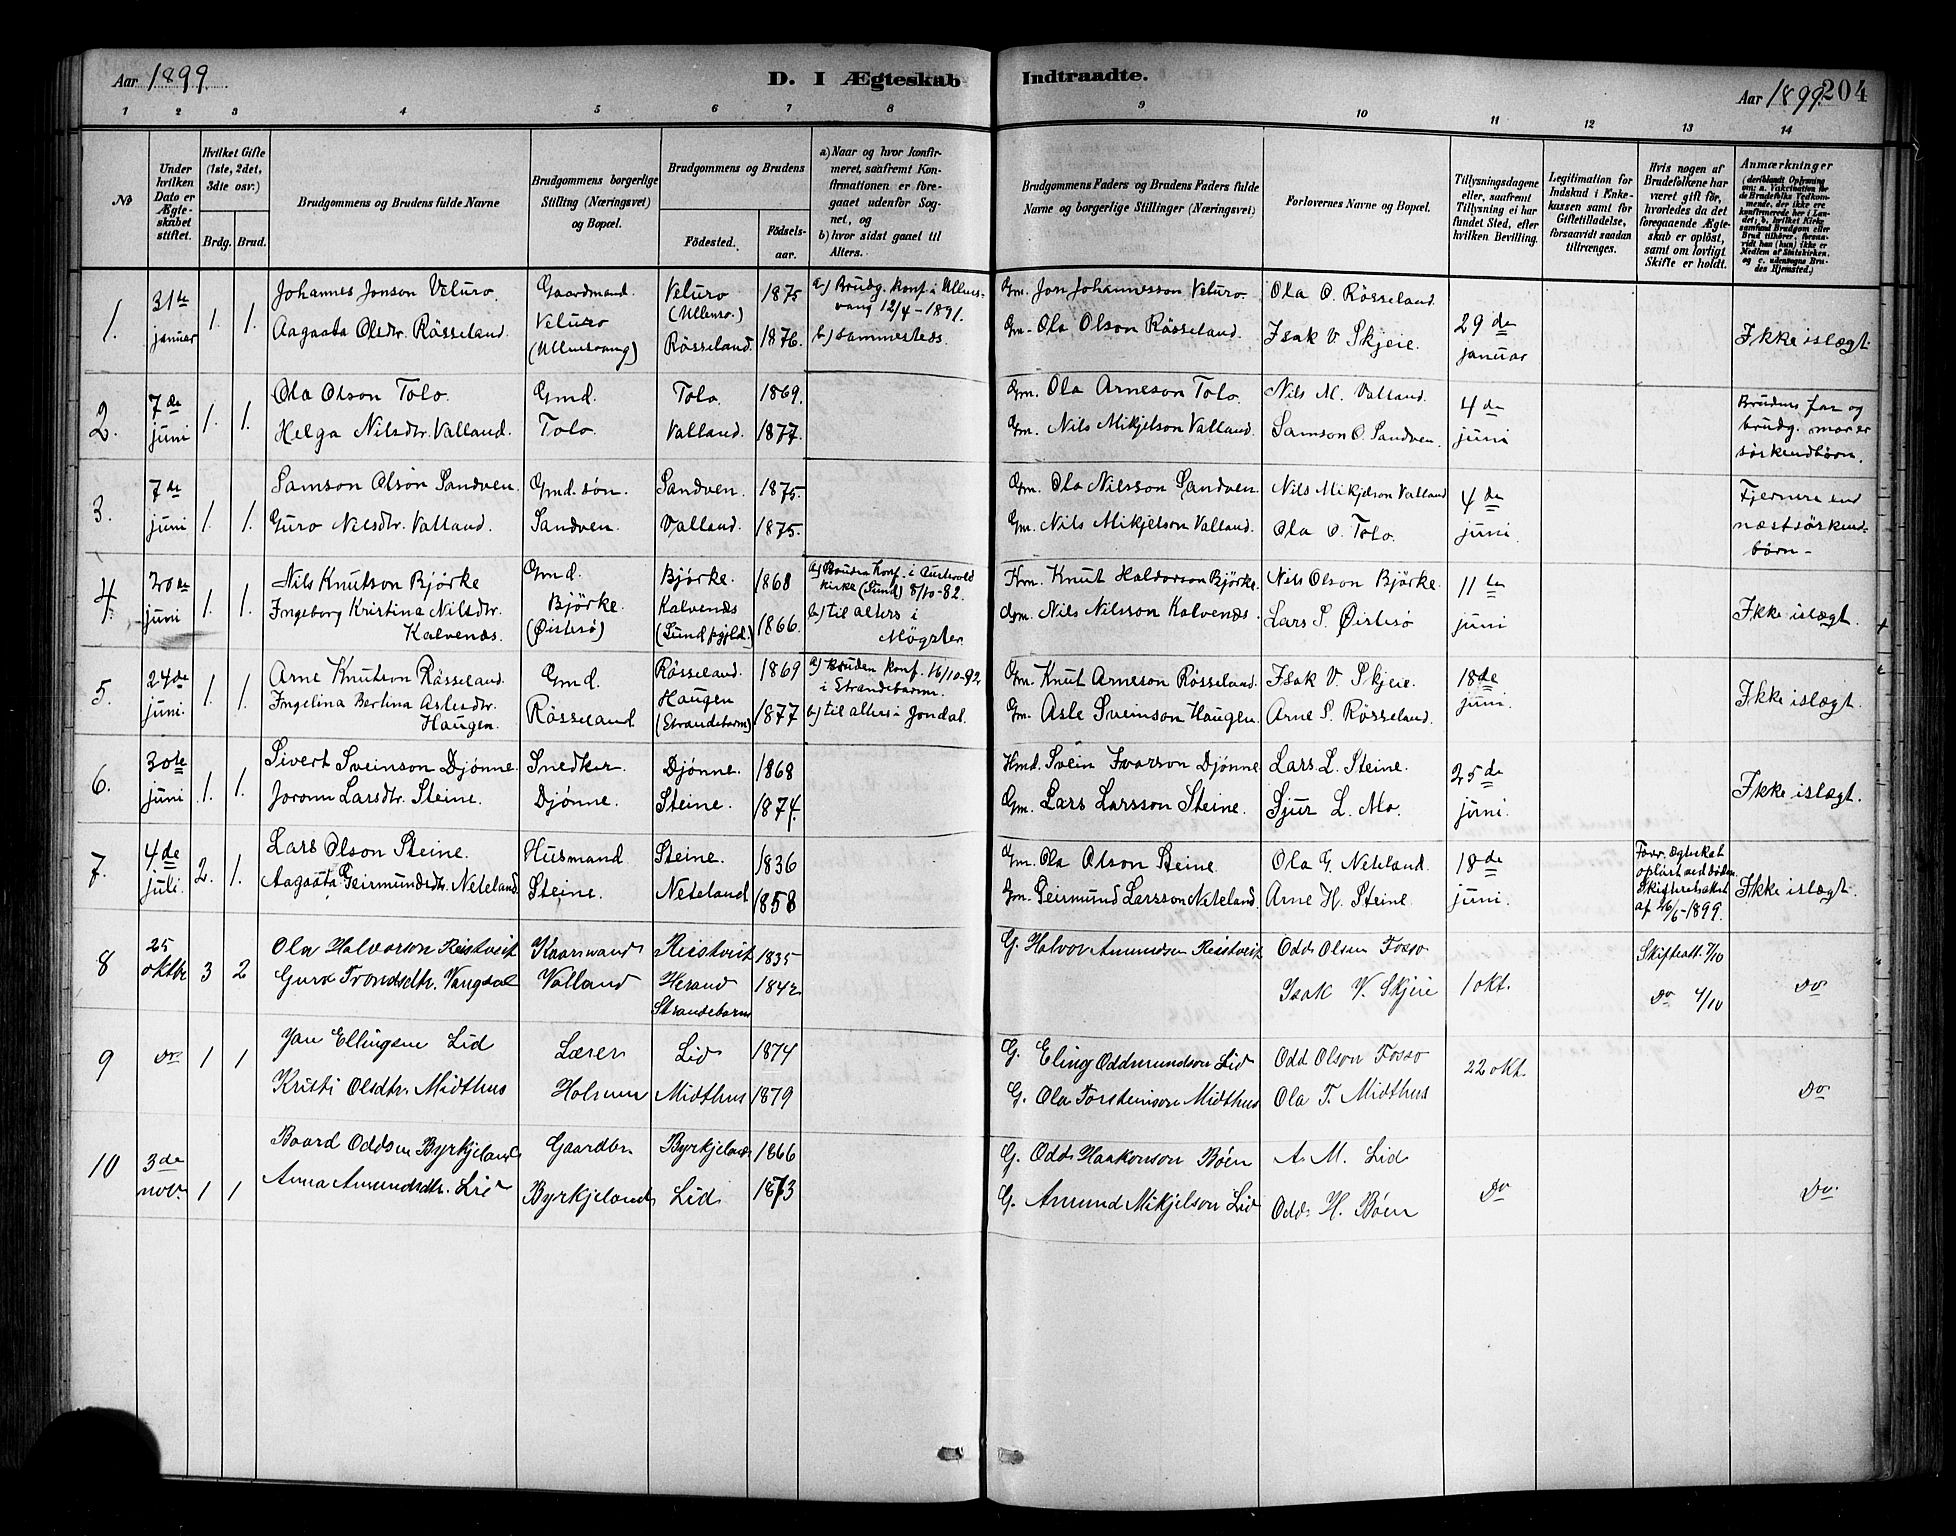 Aar 1899
D. I Ægteskab
Indtraadte.
Aar 1899.
204
1 2 3 4 5 6 7 8
9 10 11 12 13 14
No
Under hvilken Dato er Ægteskabet stiftet.
Hvilket Gifte (1ste, 2det, 3die osv.)
Brdg. Brud.
Brudgommens og Brudens fulde Navne
Brudgommens borgerlige Stilling (Næringsvei) og Bopæl.
Brudgommens og Brudens
Fødested.
Fødselsaar.
a) Naar og hvor konfirmeret, saafremt Konfirmationen er foregaaet udenfor Sognet, og
b) hvor sidst gaaet til Alters.
Brudgommens Faders og Brudens Faders fulde Navne og borgerlige Stillinger (Næringsvei)
Forlovernes Navne og Bopæl.
Tillysningsdagene eller, saafremt Tillysning ei har fundet Sted, efter hvilken Bevilling.
Legitimation for Indskud i Enkekassen samt for Giftetilladelse, forsaavidt saadan tiltrænges.
Hvis nogen af Brudefolkene har været gift før, hvorledes da det foregaaende Ægteskab er opløst, samt om lovligt Skifte er holdt.
Anmærkninger
(deriblandt Oplysning om: a. Vakcination for de Brudefolks Vedkommende, der ikke ere konfirmerede her i Landet; b. hvilket Kirkesamfund Brudgom eller Brud tilhører, forsaavidt han (hun) ikke er Medlem af Statskirken, og c. udensogns Brudes Hjemsted.)
1. 31te januar 1. 1.
Johannes Jonson Veluro.
Aagaata Olsdtr. Rösseland.
Gaardmand.
Veluro
(Ullensvang)
Veluro
(Ullensv.)
Rösseland.
1875
1876.
a) Brudg. konf. i Ullensvang 12/4 - 1891.
b) sammesteds.
Gm. Jon Johannesson Veluro.
Gm. Ola Olson Rösseland.
Ola O. Rösseland.
Isak V. Skjeie.
29de januar
Ikke islægt.
2. 7de juni 1. 1.
Ola Olson Tolo.
Helga Nilsdtr. Valland.
Gmd.
Tolo.
Tolo.
Valland.
1869.
1877.
Gm. Ola Arneson Tolo.
Gm. Nils Mikjelson Valland.
Nils M. Valland.
Samson O. Sandven.
4de juni
Brudens far og
brudg. mor er
sörkendbørn.
3. 7de juni 1. 1.
Samson Olson Sandven.
Guro Nilsdtr. Valland.
Gmd. søn.
Sandven.
Sandven.
Valland.
1875.
1875.
Gm. Ola Nilsson Sandven.
Gm. Nils Mikjelson Valland.
Nils Mikjelson Valland
Ola O. Tolo.
4de juni.
Fjernere end
næstsörkend-
børn.
4. 20de juni 1. 1.
Nils Knutson Bjørke
Ingeborg Kristina Nilsdtr.
Kalvenæs.
Gmd.
Bjørke.
(Øistesø)
Bjørke.
Kalvenæs
(Sund pgjld.)
1868
1866.
a) Bruden Konf. i Austevold
kirke (Sund) 8/10-82.
b) til alters i
Møgster.
Fm. Knut Haldorson Bjørke.
Gm. Nils Nilsson Kalvenæs.
Nils Olson Bjørke.
Lars S. Øistesø
11te juni
Ikke islægt.
5. 24de juni. 1. 1.
Arne Knutson Rösseland.
Ingelina Bertina Aslesdtr.
Haugen.
Gmd.
Rösseland
Rösseland.
Haugen
(Strandebarm)
1869
1877
a) Bruden konf. 16/10-92
i Strandebarm.
b) til alters i Jondal.
Gm. Knut Arneson Rösseland.
Gm. Asle Sveinson Haugen.
Isak V. Skjeie.
Arne S. Rösseland.
18de juni.
Ikke islægt.
6. 30te juni 1. 1.
Sivert Sveinson Djønne.
Joronn Larsdtr. Steine.
Snedker.
Djønne.
Djønne.
Steine.
1868
1874.
Hmd. Svein Ivarson Djønne
Gm. Lars Larsson Steine.
Lars L. Steine.
Sjur L. Mo.
25de juni.
Ikke islægt.
7. 4de juli. 2. 1.
Lars Olson Steine.
Aagaata Geirmundsdtr. Neteland.
Husmand
Steine.
Steine.
Neteland
1836
1858
Gm. Ola Olson Steine
Gm. Geirmund Larsson Neteland.
Ola G. Neteland.
Arne H. Steine.
18de juni
Forr. ægteskab
opløst ved døden.
Skifteretsattest
af 26/6-1899.
Ikke islægt.
8 25 oktbr 3 2
Ola Halvorson Reistveit
Guro Trondsdtr. Vangdal
Kaarmand
Valland
Reistveit
Herand
Strandebarm
1835
1842
G. Halvor Amundsen Reistveit
Odd Olsen Fosso
Isak V. Skjeie
1 okt.
Skifteatt. 7/10
Do 4/10
Do
9 Do 1 1
Jan Ellingsen Lid
Kristi Olsdtr. Midthus
Lærer
Holmen
Lid
Midthus
1874
1879
G. Eling Oddmundson Lid
G. Ola Torsteinson Midthus
Odd Olson Fosso
Ola T. Midthus
22 okt.
Do
10 3de novr 1 1
Baard Oddsen Byrkjeland
Anna Amundsdtr. Lid
Gaardbr
Byrkjeland
Byrkjeland
Lid
1866
1873
G. Odd Haakonson Bøen
G. Amund Mikjelson Lid
A. M. Lid
Odd H. Bøen
Do
Do.